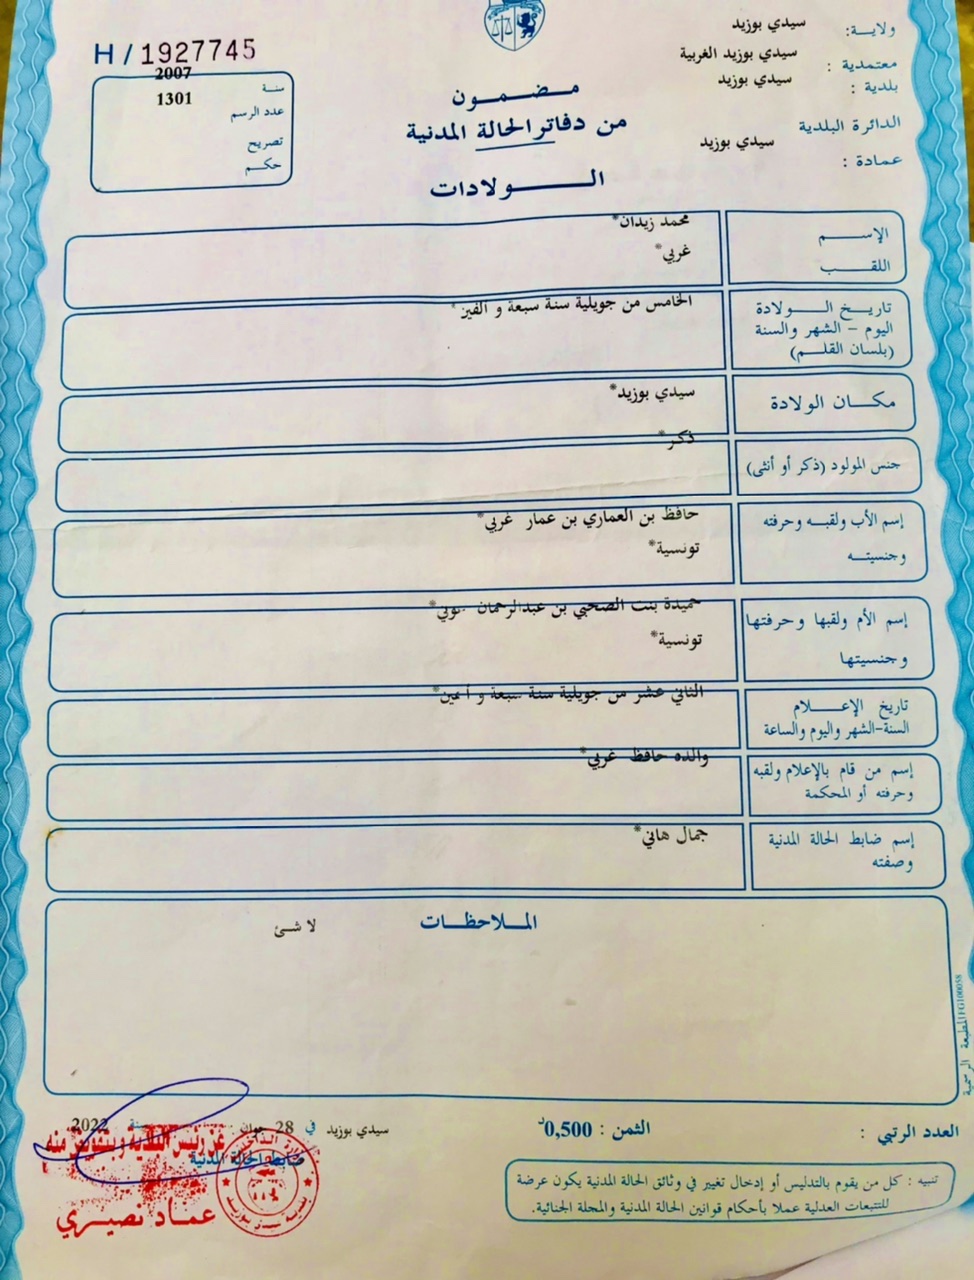 ولاية: سيدي بوزيد
معتمدية : سيدي بوزيد الغربية
بلدية : سيدي بوزيد
الدائرة البلدية
عمادة : سيدي بوزيد
H / 1927745
سنة 2007
عدد الرسم 1301
تصريح
حكم
مضمون
من دفاتر الحالة المدنية
الولادات
الإسم محمد زيدان*
اللقب غربي*
تاريخ الولادة الخامس من جويلية سنة سبعة و الفين*
اليوم - الشهر والسنة
(بلسان القلم)
مكان الولادة سيدي بوزيد*
جنس المولود (ذكر أو أنثى) ذكر*
إسم الأب ولقبه وحرفته حافظ بن العماري بن عمار غربي*
وجنسيته تونسية*
إسم الأم ولقبها وحرفتها حميدة بنت الصحبي بن عبدالرحمان
وجنسيتها تونسية*
تاريخ الإعلام الثاني عشر من جويلية سنة سبعة و
السنة-الشهر واليوم والساعة
إسم من قام بالإعلام ولقبه والده حافظ غربي*
وحرفته أو المحكمة
إسم ضابط الحالة المدنية جمال هاني*
وصفته
الملاحظات
لا شئ
المطبعة الرسمية
العدد الرتبي :
الثمن : 0,500د
سيدي بوزيد في 28 جوان سنة 2022
عن رئيس البلدية وبتفويض منه
ضابط الحالة المدنية
عماد نصيري
تنبيه : كل من يقوم بالتدليس أو إدخال تغيير في وثائق الحالة المدنية يكون عرضة
للتتبعات العدلية عملا بأحكام قوانين الحالة المدنية والمجلة الجنائية.